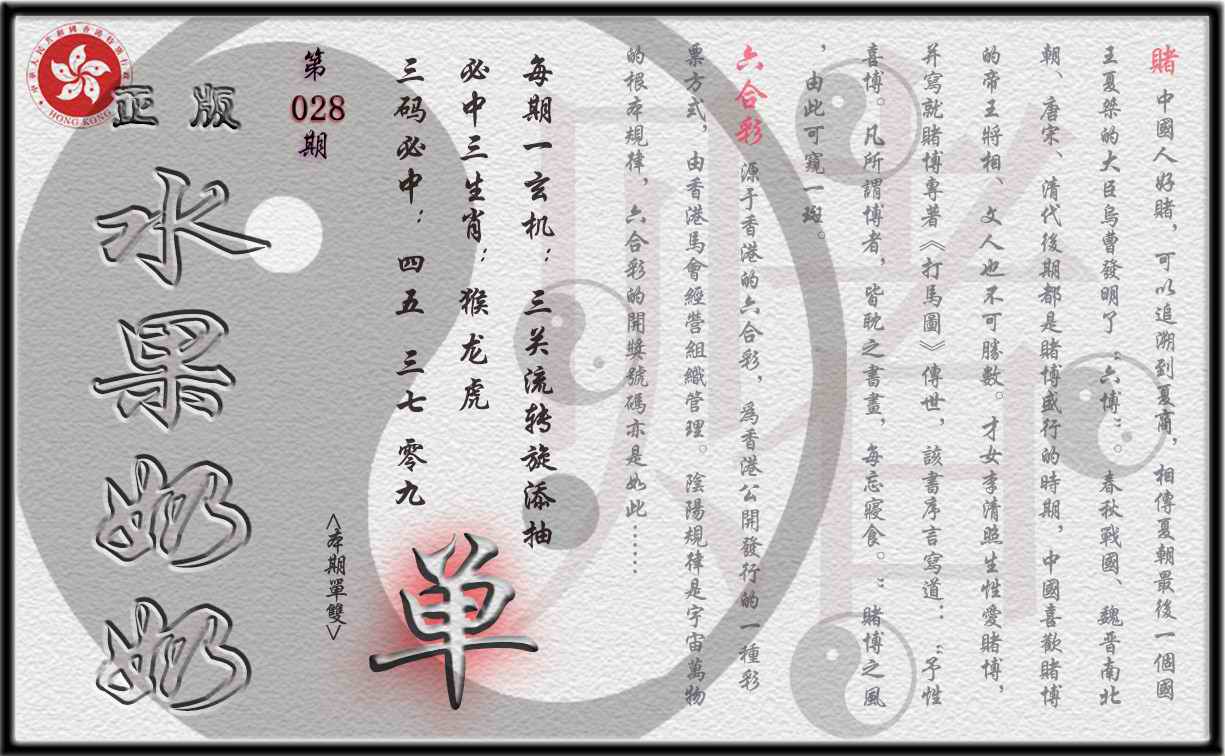 賭 中國人好賭，可以追溯到夏商，相傳夏朝最後一個國
王夏桀的大臣烏曹發明了“六博”。春秋戰國、魏晋南北
朝、唐宋、清代後期都是賭博盛行的時期，中國喜歡賭博
的帝王將相、文人也不可勝數。才女李清照生性愛賭博，
并寫就賭博專著《打馬圖》傳世，該書序言寫道：“予性
喜博。凡所謂博者，皆耽之書畫，每忘寢食。”賭博之風
，由此可窺一斑。
六合彩 源于香港的六合彩，爲香港公開發行的一種彩
票方式，由香港馬會經營組織管理。陰陽規律是宇宙萬物
的根本規律，六合彩的開獎號碼亦是如此……
每期一玄机：三关流转旋添抽
必中三生肖：猴龙虎
三码必中：四五 三七 零九
单
<本期單雙>
第
028
期
正版
水果奶奶
HONG KONG